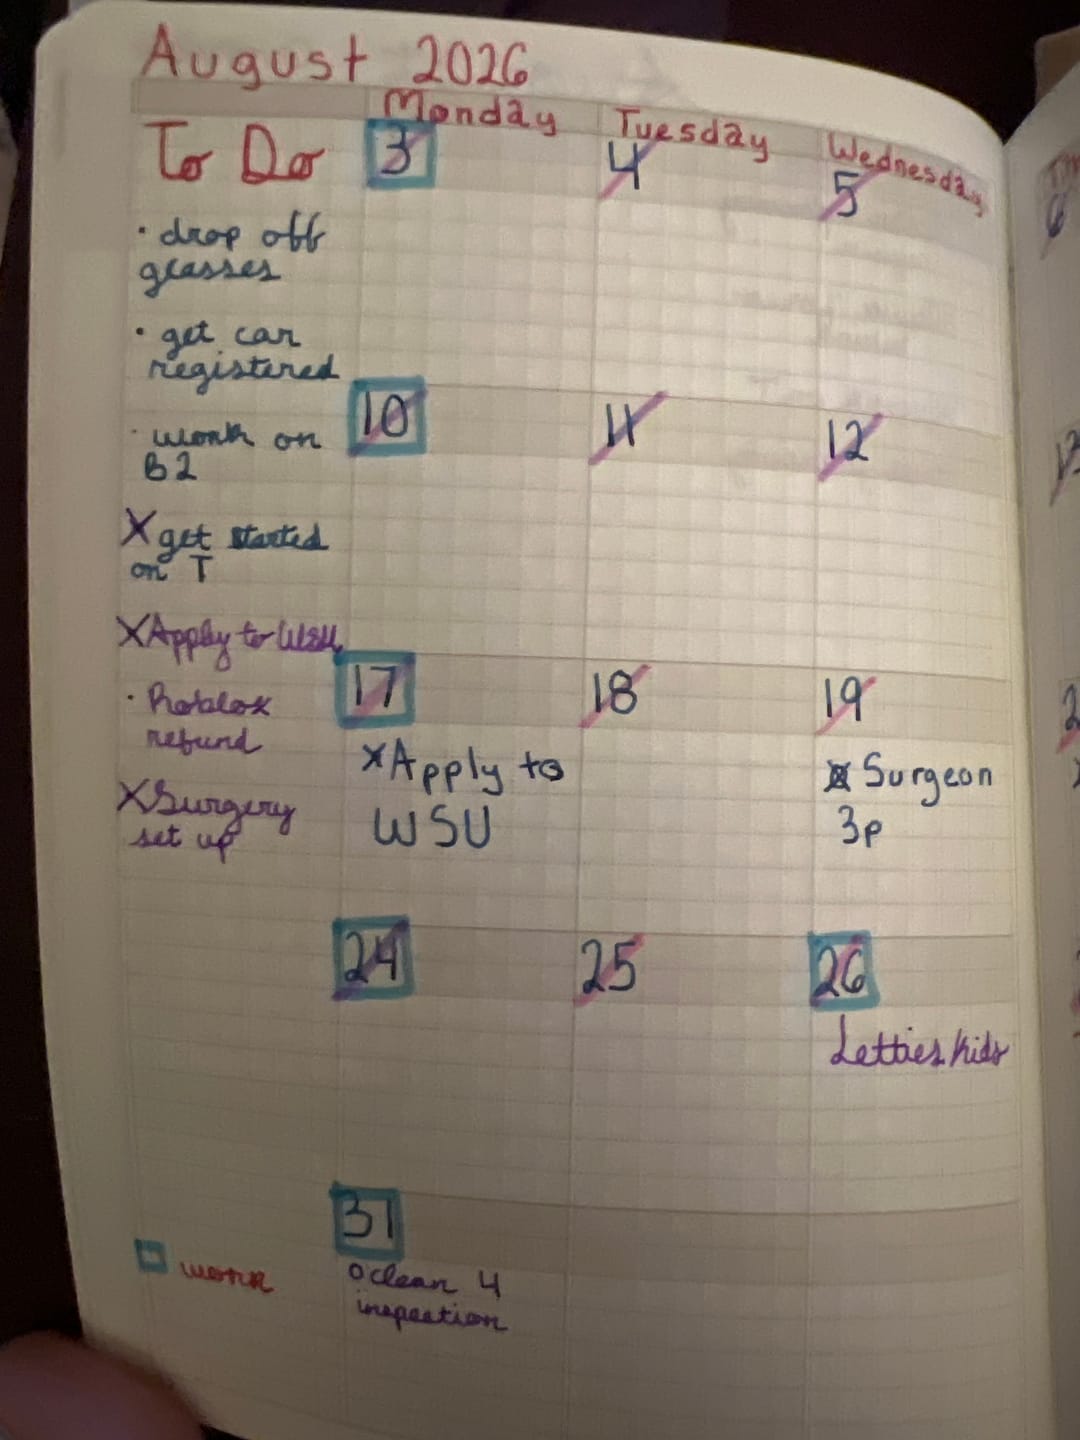 August 2026
Monday
Tuesday
Wednesday
To Do
3
4
5
6
• drop off
glasses
• get car
registered
10
11
12
13
• work on
B2
X get started
on T
X Apply to WSU
17
18
19
• Roblox
refund
X Apply to
WSU
Surgeon
3p
X Surgery
set up
24
25
26
Letties kids
31
o clean 4
inspection
work